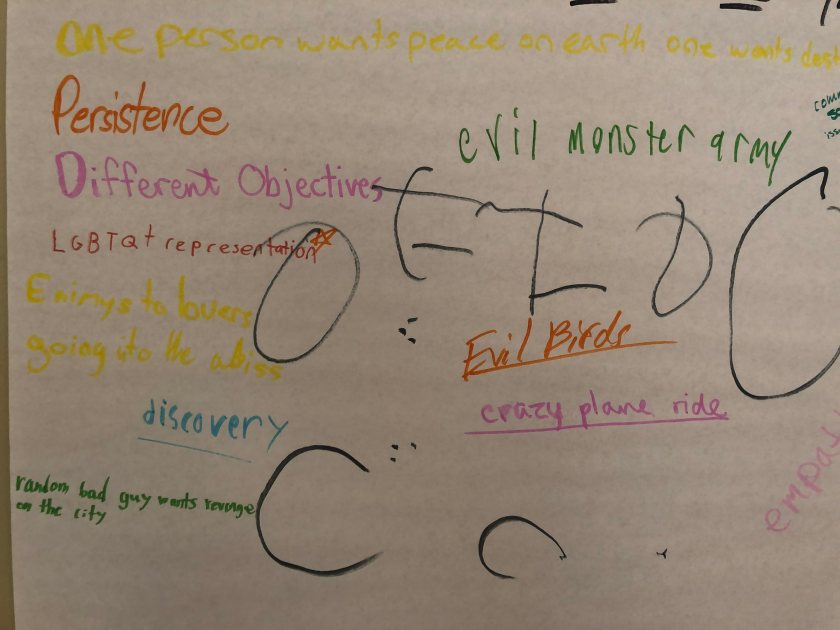 one person wants peace on earth one wants
Persistence
evil monster army
Different Objectives
LGBTQ+ representation
Enimys to lovers
going into the abiss
Evil Birds
crazy plane ride
discovery
random bad guy wants revenge
on the city